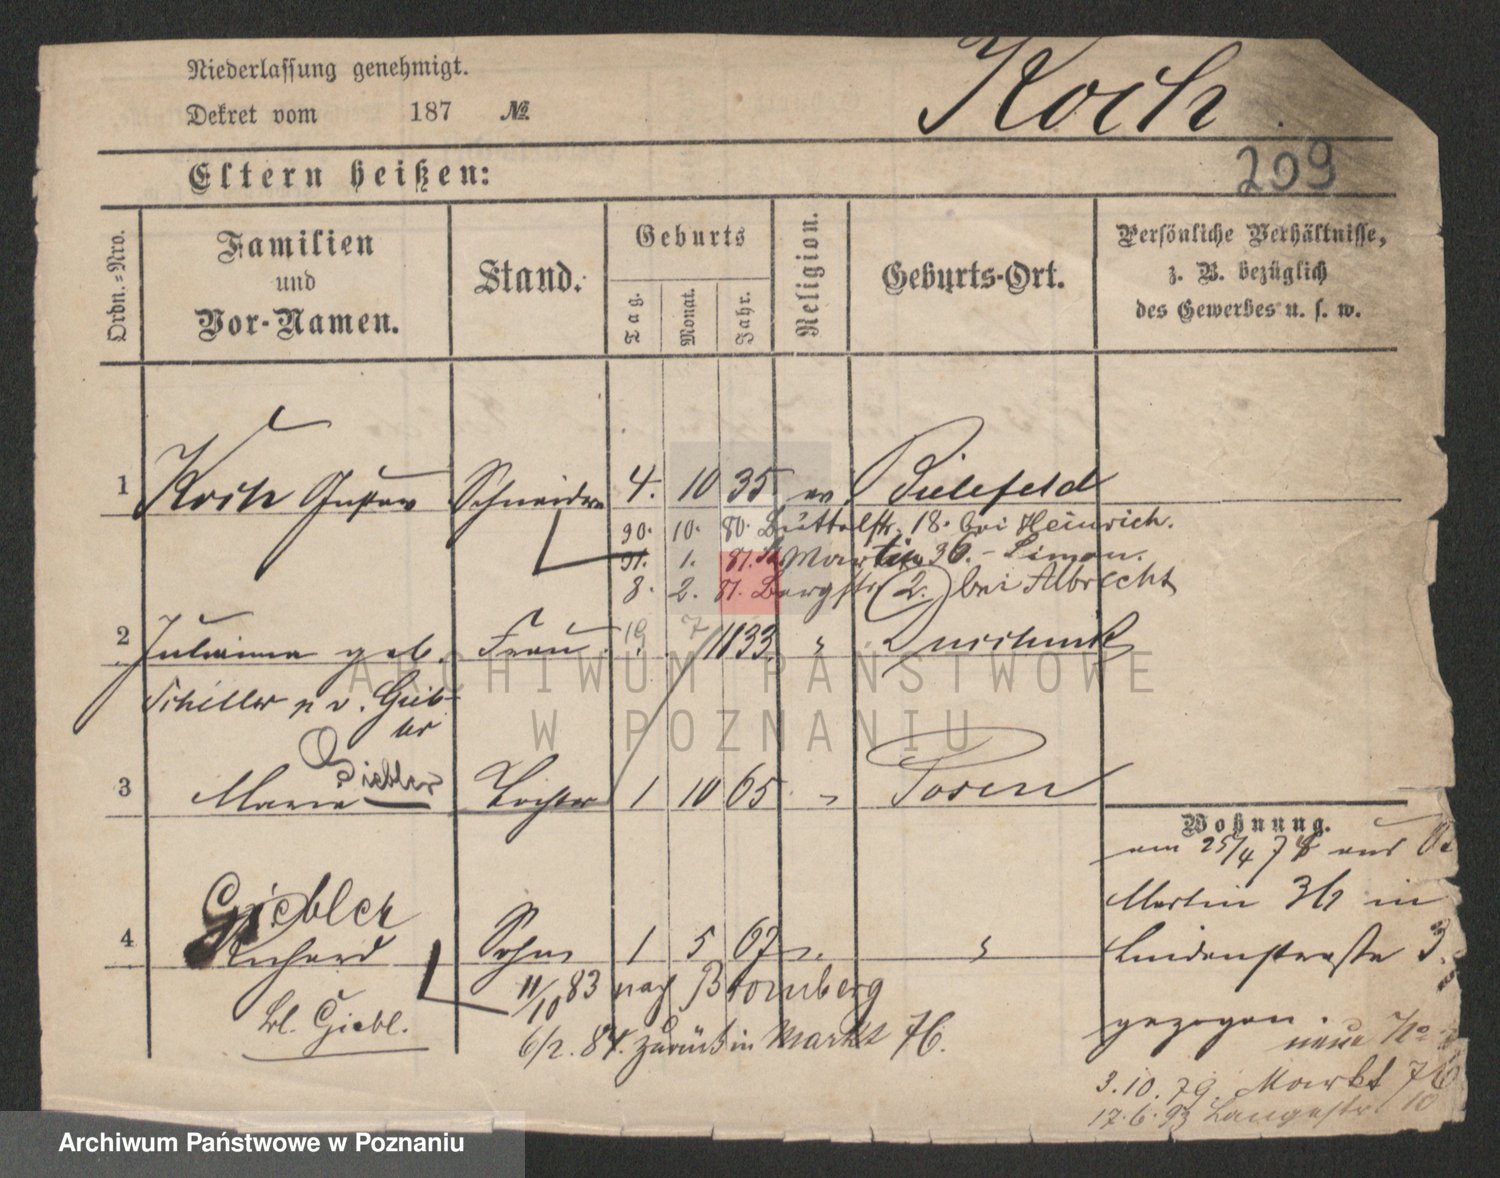 Niederlassung genehmigt.
Koch
Dekret vom 187 No.
Eltern heißen:
209
Ordn.-Nro.
Familien und Vor-Namen.
Stand.
Geburts
Tag.
Monat.
Jahr.
Religion.
Geburts-Ort.
Persönliche Verhältnisse,
z. B. bezüglich
des Gewerbes u. s. w.
1 Koch Gustav Schneider 4. 10 35 ev Bielefeld
30. 10. 80. Büttelstr. 18. bei Heinrich.
31. 1. 81. St. Martin 36. - Simon.
8. 2. 81. Bergstr. 2. bei Albrecht
2 Julianna geb. Frau 19. 7 1833 "
Schiller v. Gieb-
ler
Giebler
3 Maria Tochter 1 10 65 " Posen
Wohnung.
am 25/4 78 aus St.
Martin 36 in
Lindenstraße 3.
gezogen.
neue No
3.10.79. Markt 76
17.6.93 Langestr. 10
Giebler
4 Richard Sohn 1 5 67 "
11/10 83 nach Bromberg
gl. Giebl.
6/2. 84. zurück in Markt 76.
ARCHIWUM PAŃSTWOWE
W POZNANIU
Archiwum Państwowe w Poznaniu